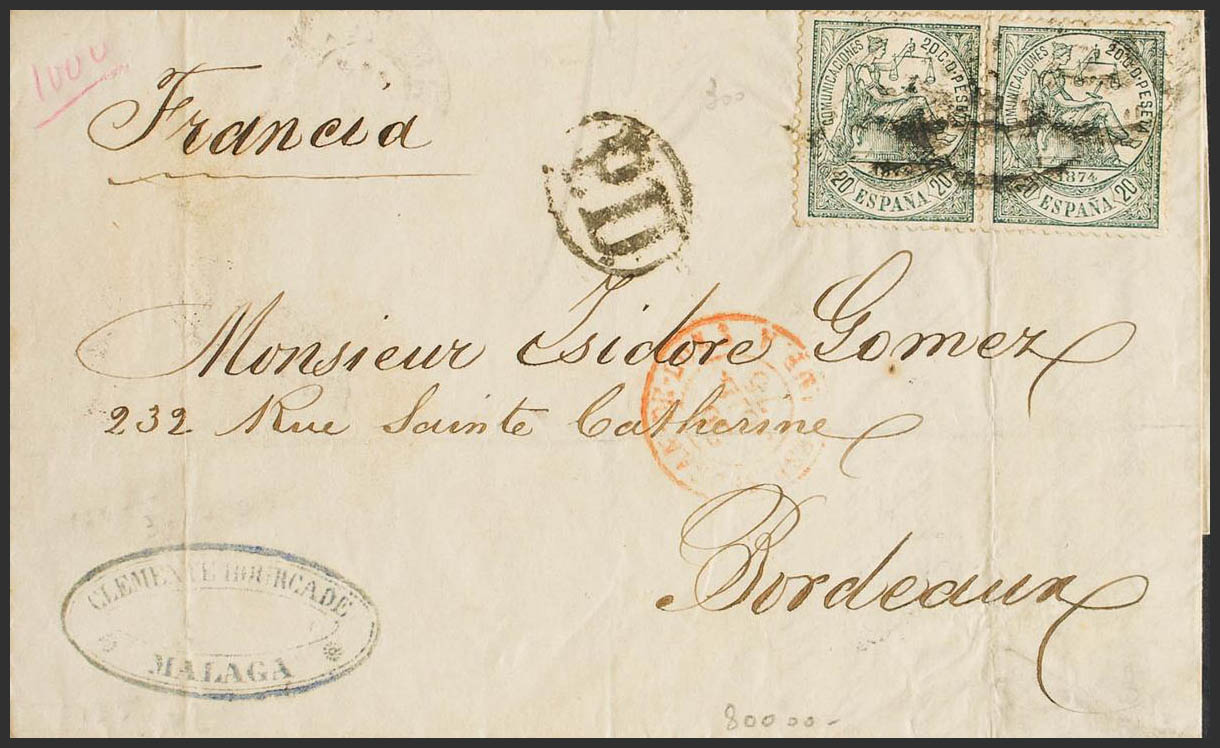 1000
Francia
300
P.D.
COMUNICACIONES 20 C. D. PESETA
1874
20 ESPAÑA 20
COMUNICACIONES 20 C. D. PESETA
1874
20 ESPAÑA 20
Monsieur Isidore Gomez
232 Rue Sainte Catherine
Bordeaux
CLEMENTE BOURCADE
MALAGA
80000-